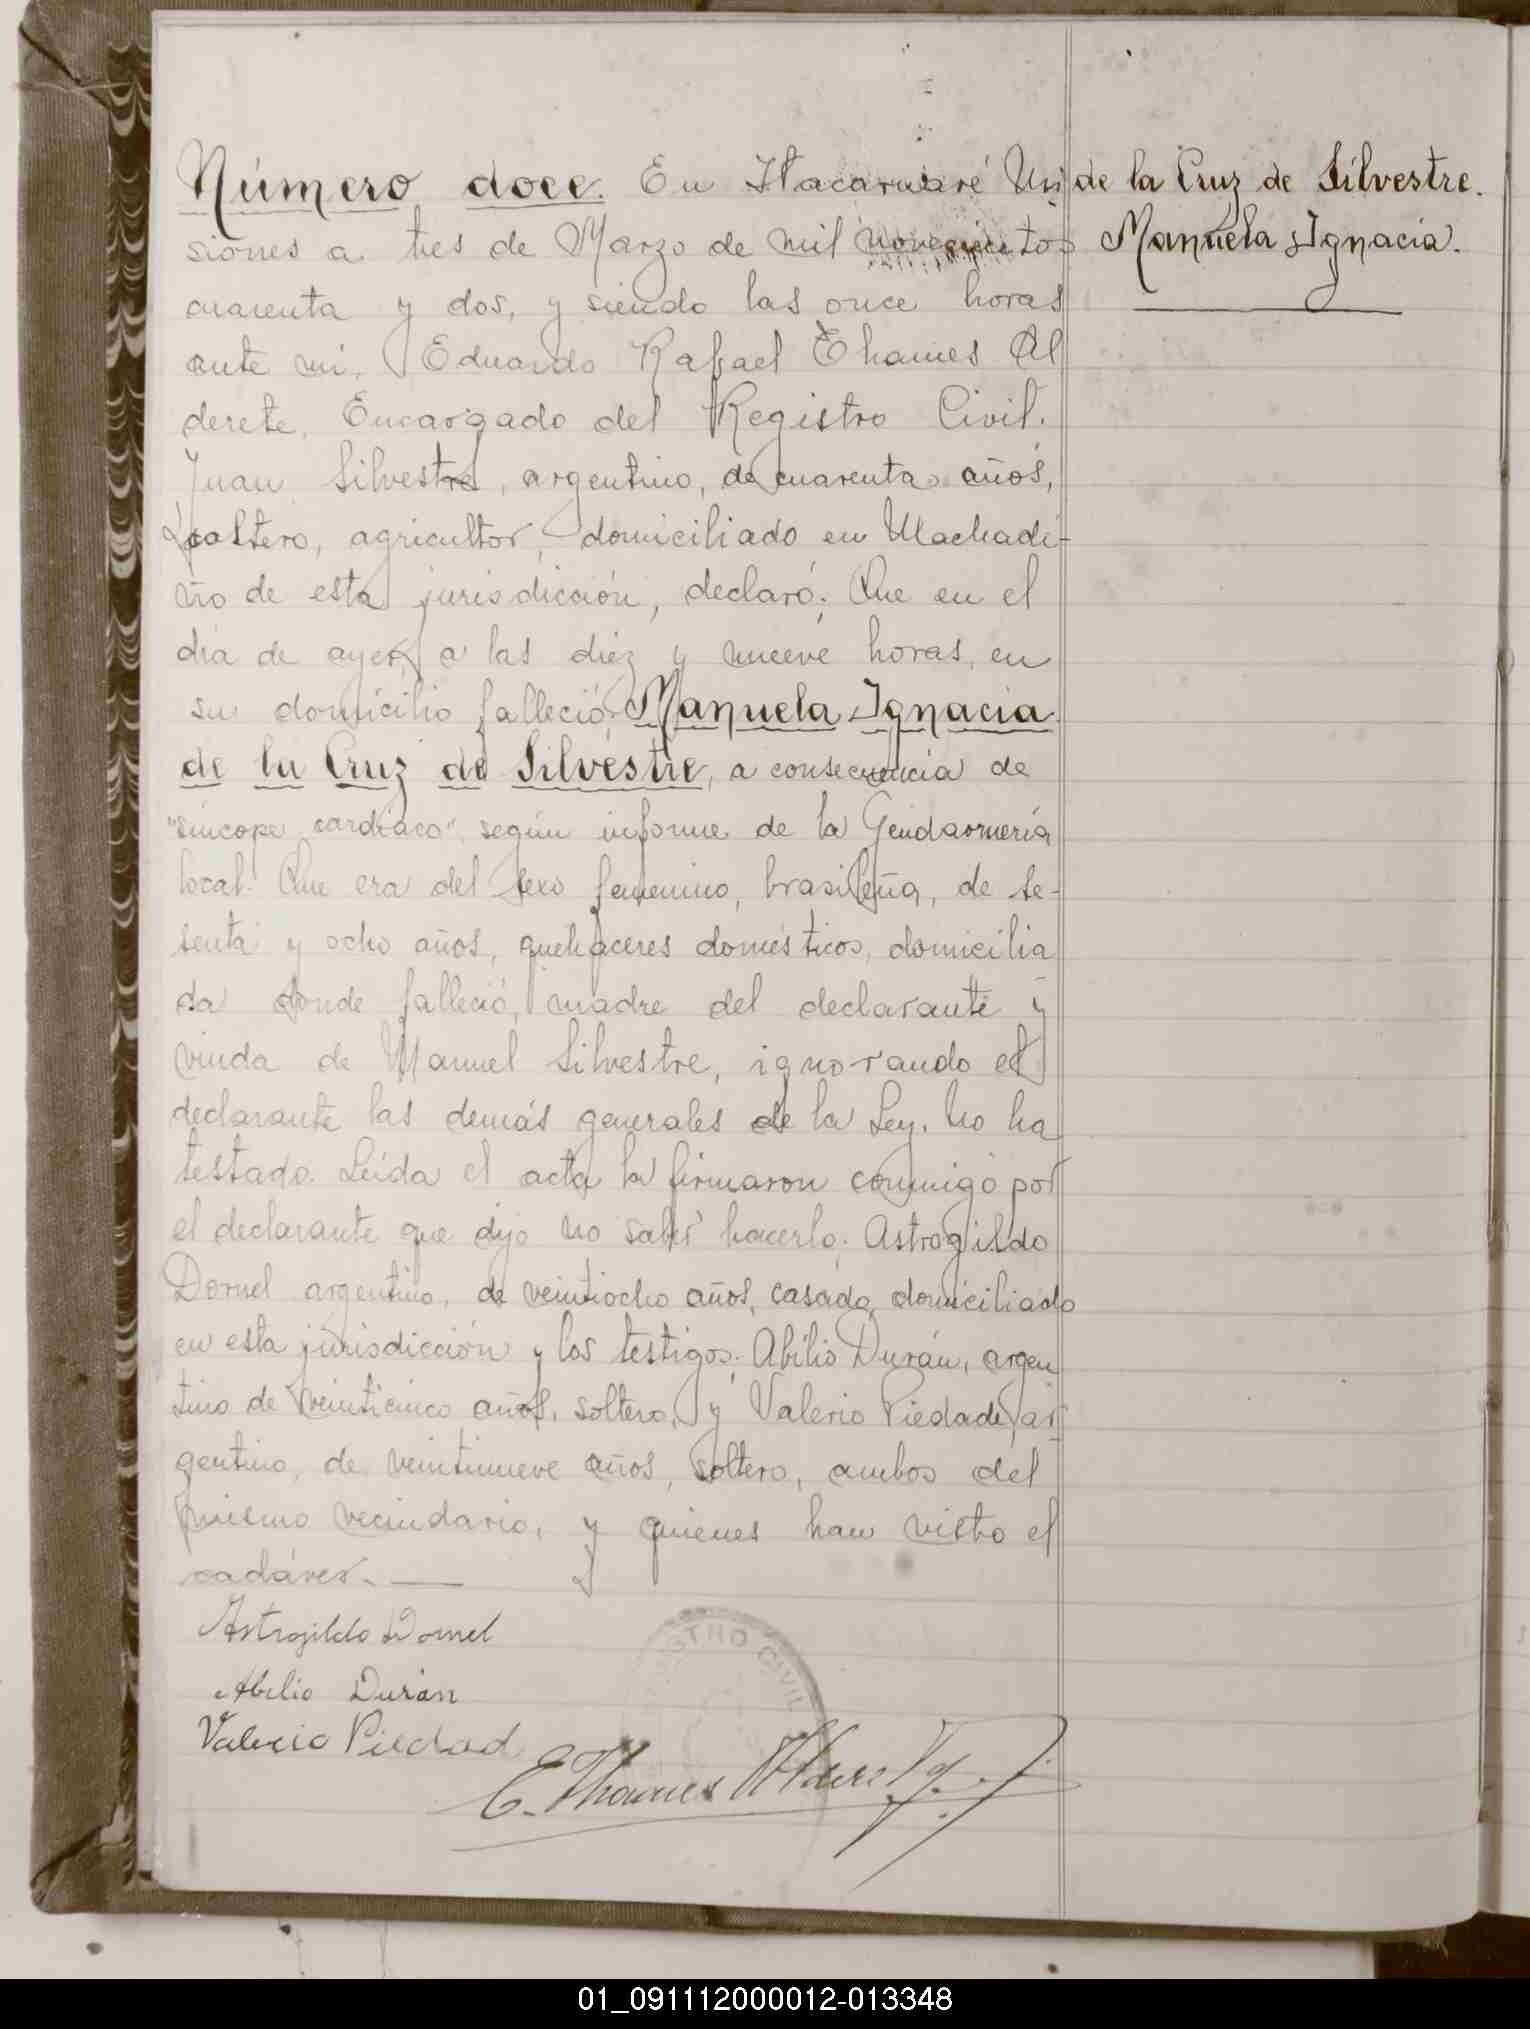 Número doce. En Itacaruaré Mi
siones a tres de Marzo de mil novecientos
cuarenta y dos, y siendo las once horas
ante mí, Eduardo Rafael Thames Al
derete, Encargado del Registro Civil.
Juan Silvestre, argentino, de cuarenta años,
soltero, agricultor, domiciliado en Machadi-
ño de esta jurisdicción, declaró: Que en el
día de ayer, a las diez y nueve horas, en
su domicilio falleció Manuela Ignacia
de la Cruz de Silvestre, a consecuencia de
"síncope cardíaco", según informe de la Gendarmería
local. Que era del sexo femenino, brasileña, de se-
senta y ocho años, quehaceres domésticos, domicilia
da donde falleció, madre del declarante y
viuda de Manuel Silvestre, ignorando el
declarante las demás generales de la Ley. No ha
testado. Leída el acta la firmaron conmigo por
el declarante que dijo no saber hacerlo: Astrogildo
Dornel argentino, de veintiocho años, casado, domiciliado
en esta jurisdicción y los testigos: Abilio Durán, argen
tino de veinticinco años, soltero, y Valerio Piedade, ar
gentino, de veintinueve años, soltero, ambos del
mismo vecindario, y quienes han visto el
cadáver.-
Astrogildo Dornel
Abilio Durán
Valerio Piedad
E. Thames Alderete
REGISTRO CIVIL
de la Cruz de Silvestre.
Manuela Ignacia.
01_091112000012-013348